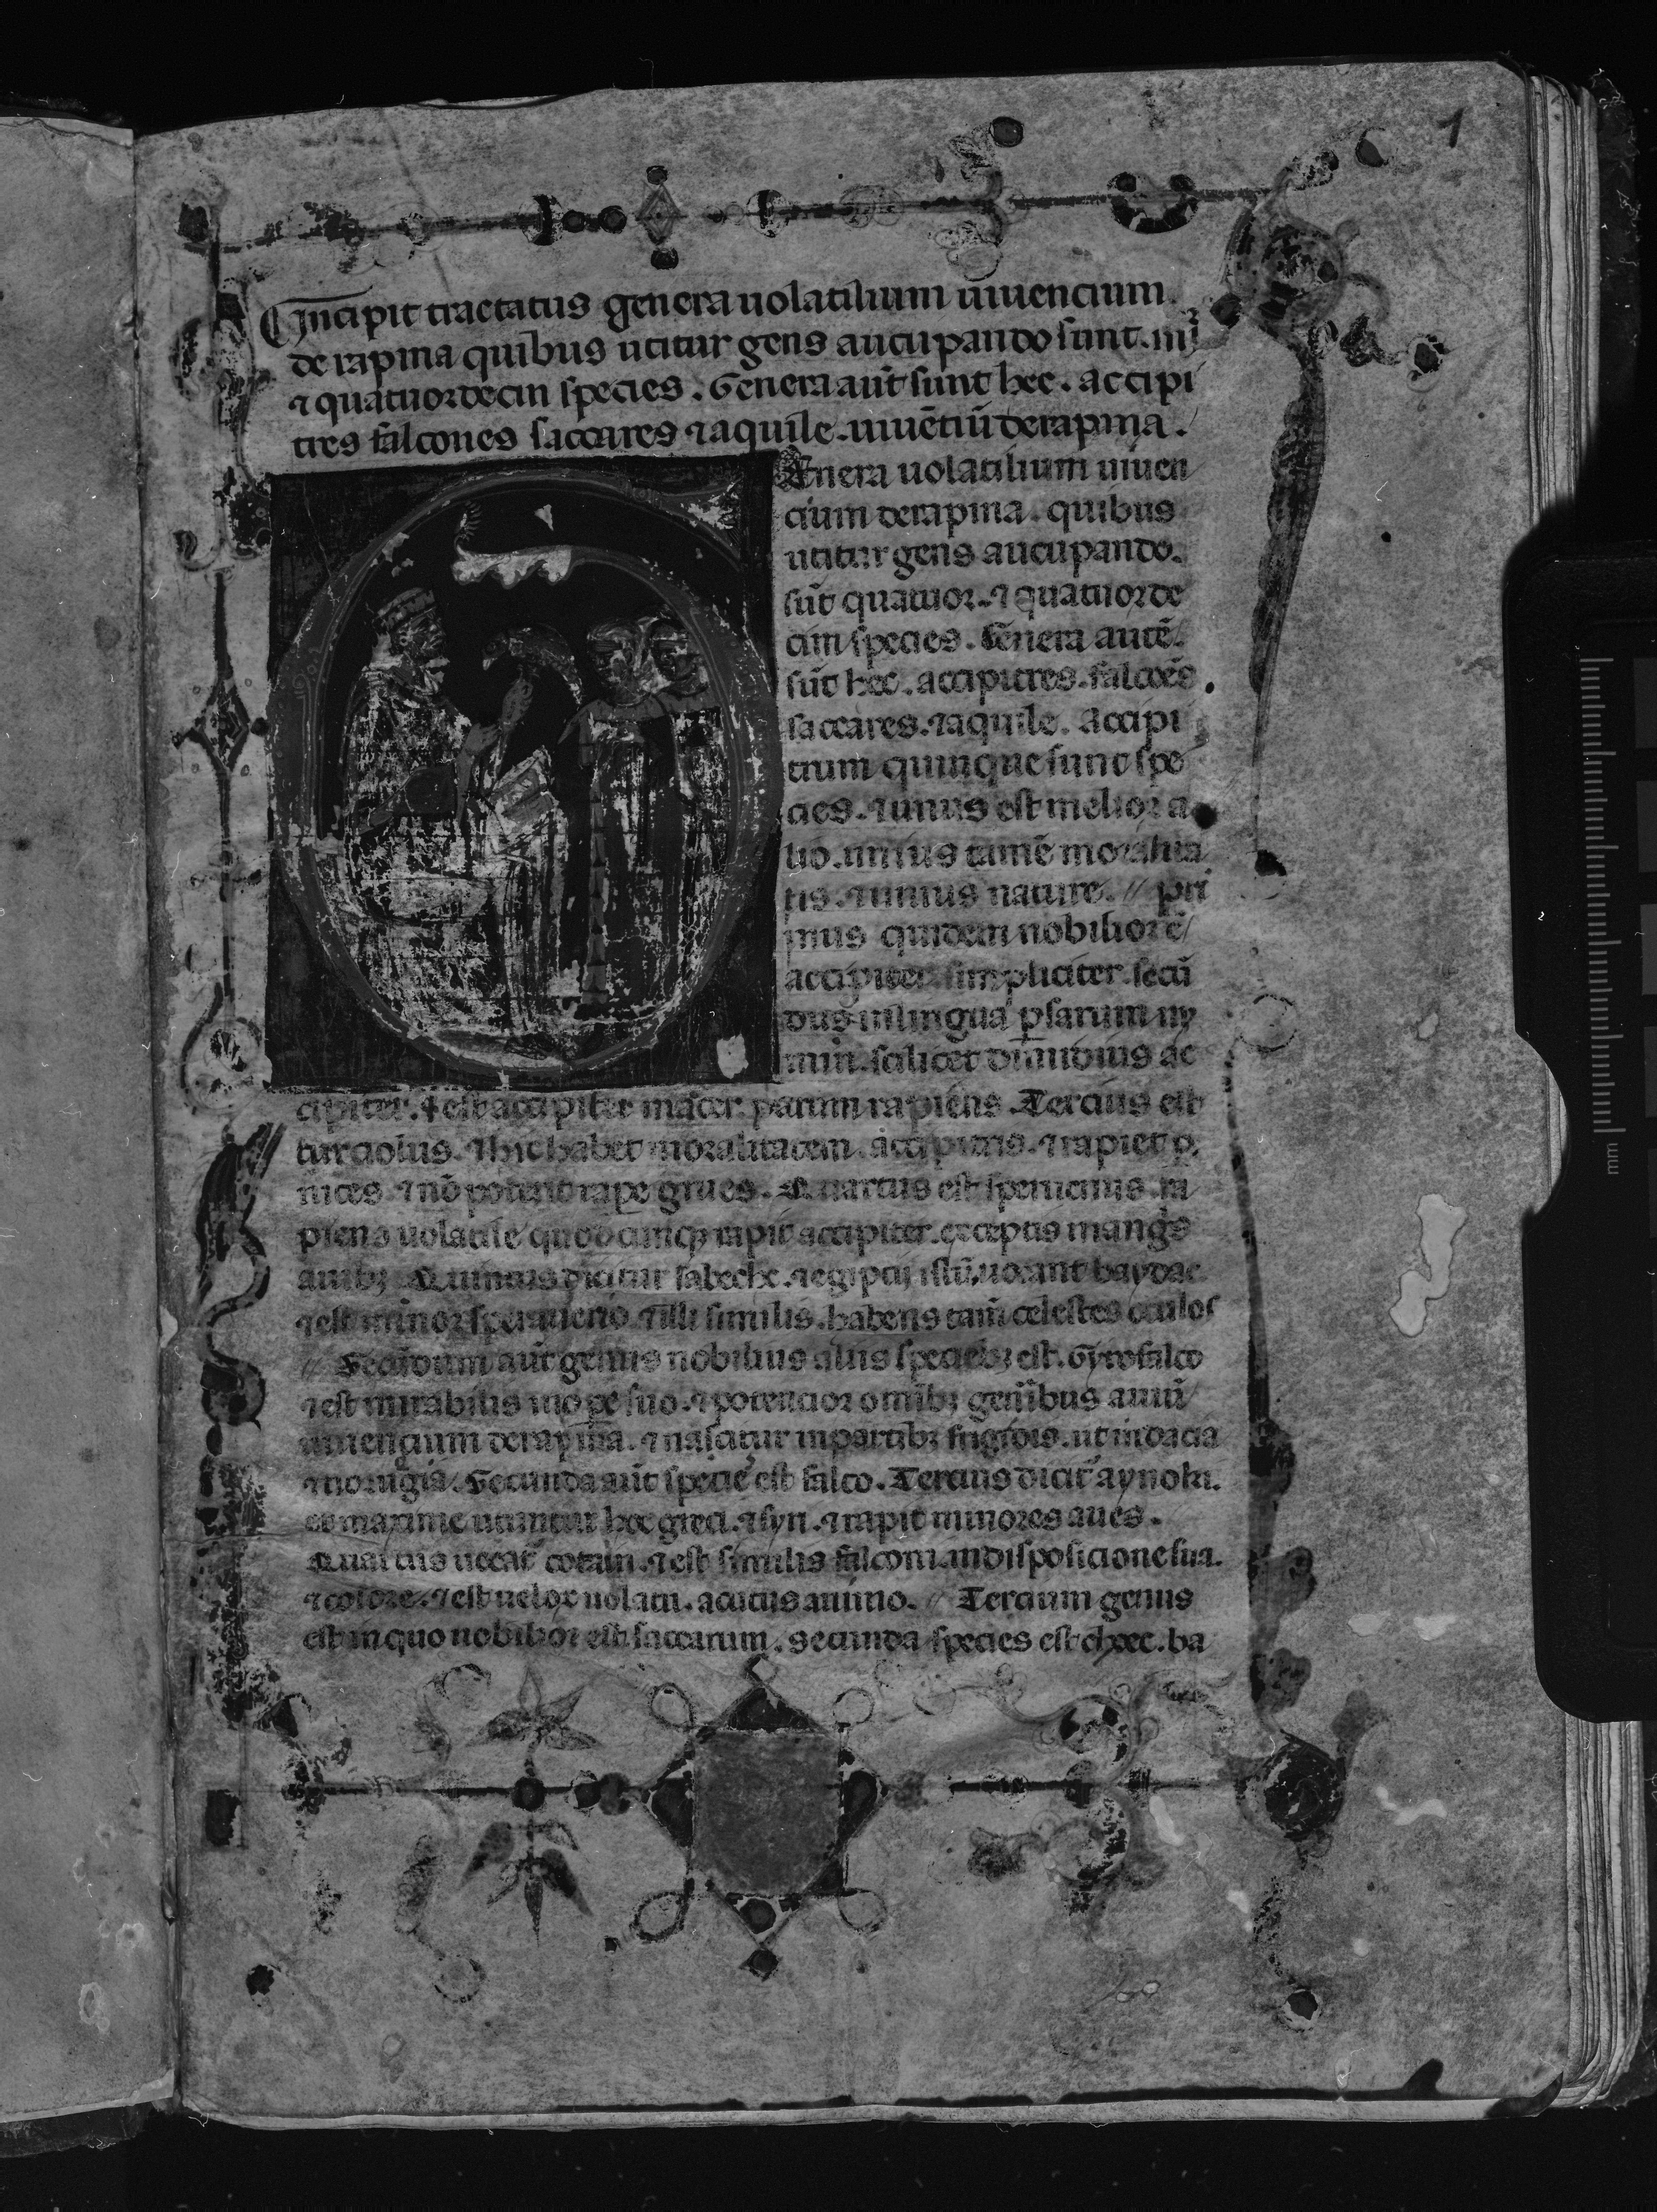 1
Incipit tractatus genera uolatilium uiuencium
de rapina quibus utitur gens aucupando sunt .iiijor
⁊ quatuordecin species. Genera aut̄ sunt hec. accipi
tres falcones saccares ⁊ aquile. uiuētiū de rapina.
Enera uolatilium uiuen
cium de rapina. quibus
utitur gens aucupando.
sūt quatuor. ⁊ quatuorde
cim species. Genera autē
sūt hec. accipitres. falcoēs
saccares. ⁊ aquile. Accipi
trum quinque sunt spe
cies. ⁊ unus est melior a
lio. unius tamē moralita
tis. ⁊ unius nature. // pri
mus quidem nobilior ē/
accipiter simpliciter. secū
dus in lingua ꝑsarum ny
min. scilicet dimidius ac
cipiter. ⁊ est accipiter macer. parum rapiens. Tercius est
turciolus. ⁊ hic habet moralitatem accipitris. ⁊ rapiet ꝑ
nices ⁊ nō potend raꝑe grues. Quartus est speruerius. ra
piens uolatile quodcumqꝫ rapit accipiter. exceptis mangs
auibꝫ Quintus dicitur sabeche. ⁊ egiptij istū uocant baydac
⁊ est minor speruerio ⁊ illi similis. habens tam̄ celestes oculos
// Secūdum aut̄ genus nobilius aliis speciebꝫ est. Gyrofalco
⁊ est mirabilis in oꝑe suo. ⁊ potencior omibꝫ geñibus auiū
uiuencium de rapina. ⁊ nascitur in partibꝫ frigidis. ut in dacia
⁊ norugia. Secunda aut̄ specie est falco. Tercius dicit̄ aynolu.
eo maxime utuntur hec greci. ⁊ syri. ⁊ rapit minores aues.
Quartus uocat̄ cotain. ⁊ est similis falconi in dispositione sua.
⁊ colore. ⁊ est uelox uolatu. acutus animo. // Tercium genus
est in quo nobilior est saccarum. secunda species est chxec. ba